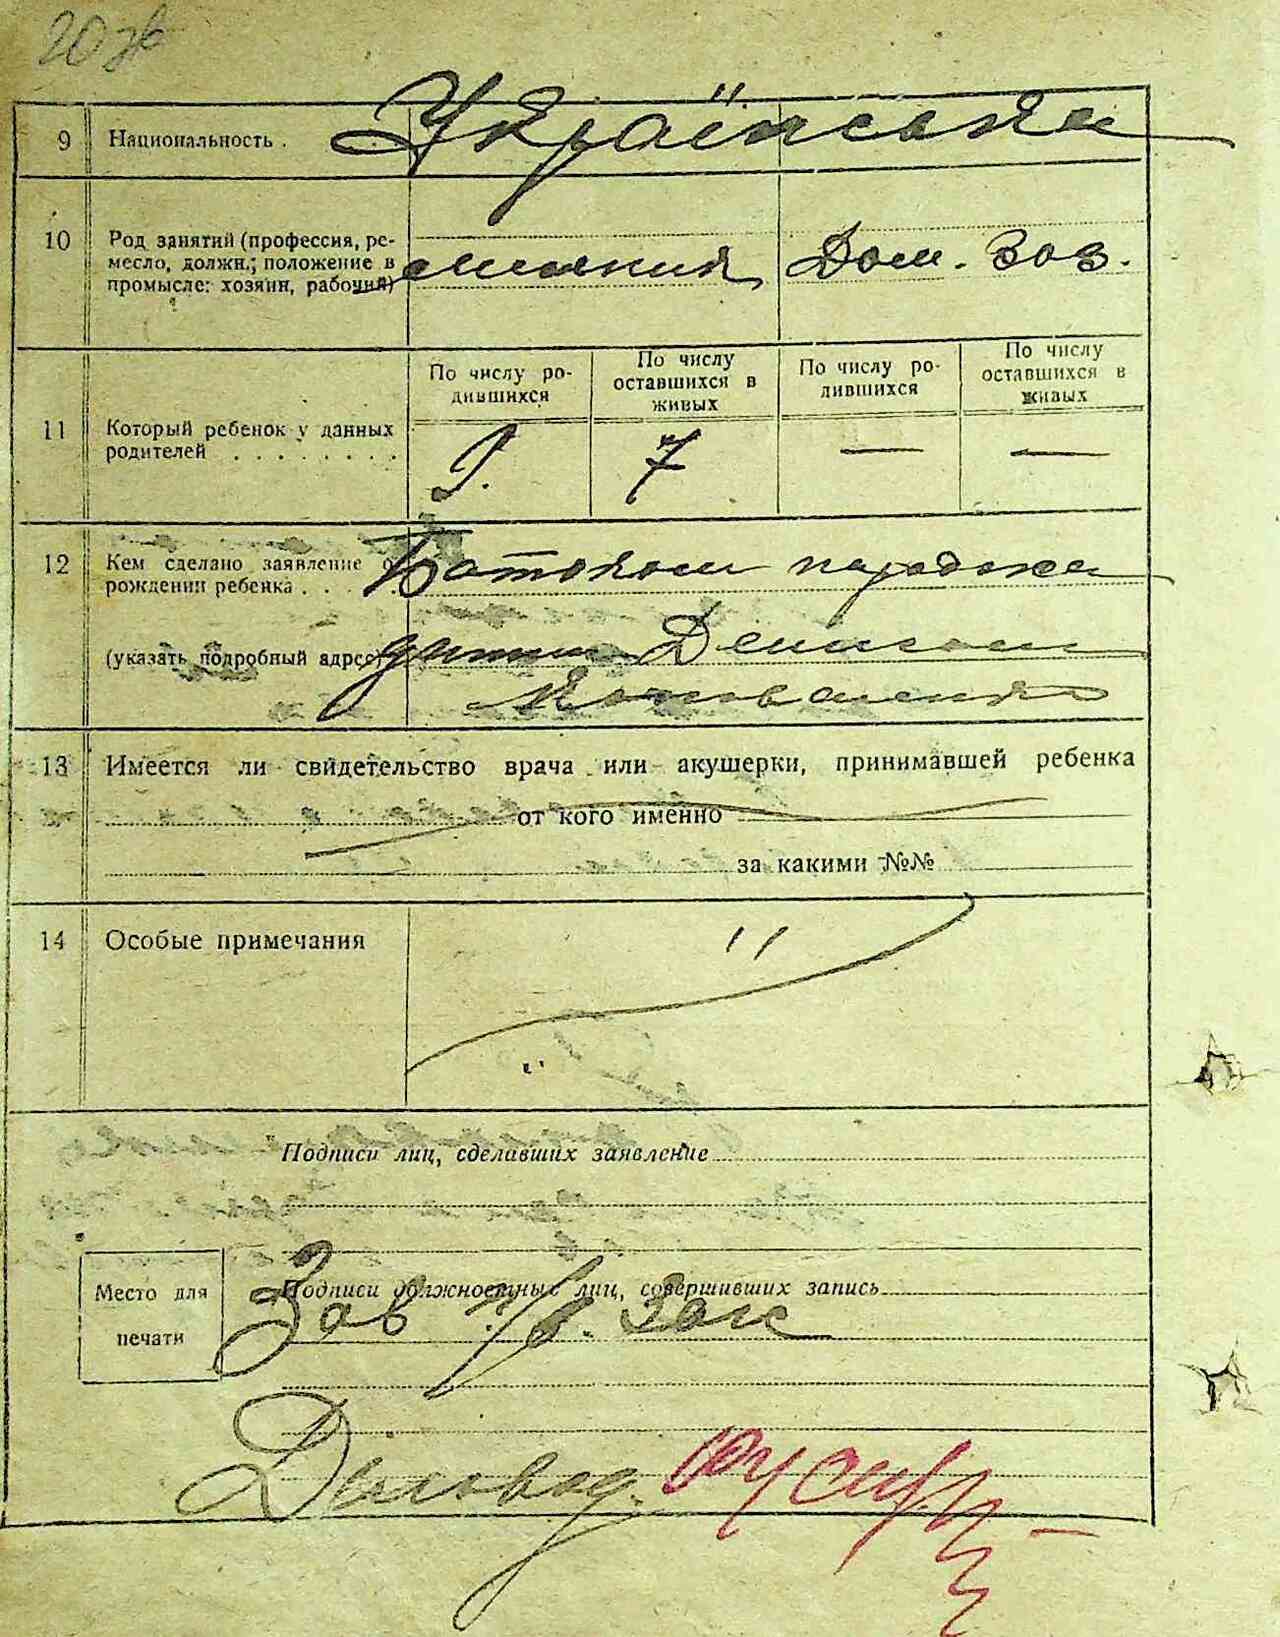 20
9 Национальность . Українська
10 Род занятий (профессия, ре-
месло, должн.; положение в
промысле: хозяин, рабочий)
Дом. Хоз.
11 Который ребенок у данных
родителей . . . . . . . .
По числу ро-
дившихся
По числу
оставшихся в
живых
По числу ро-
дившихся
По числу
оставшихся в
живых
9. 7 — —
12 Кем сделано заявление о
рождении ребенка . . . Батоком
(указать подробный адрес) Денисом
13 Имеется ли свидетельство врача или акушерки, принимавшей ребенка
от кого именно
за какими №№
14 Особые примечания
Подписи лиц, сделавших заявление
Место для
печати
Подписи должностных лиц, совершивших запись
Зав
Діловод.